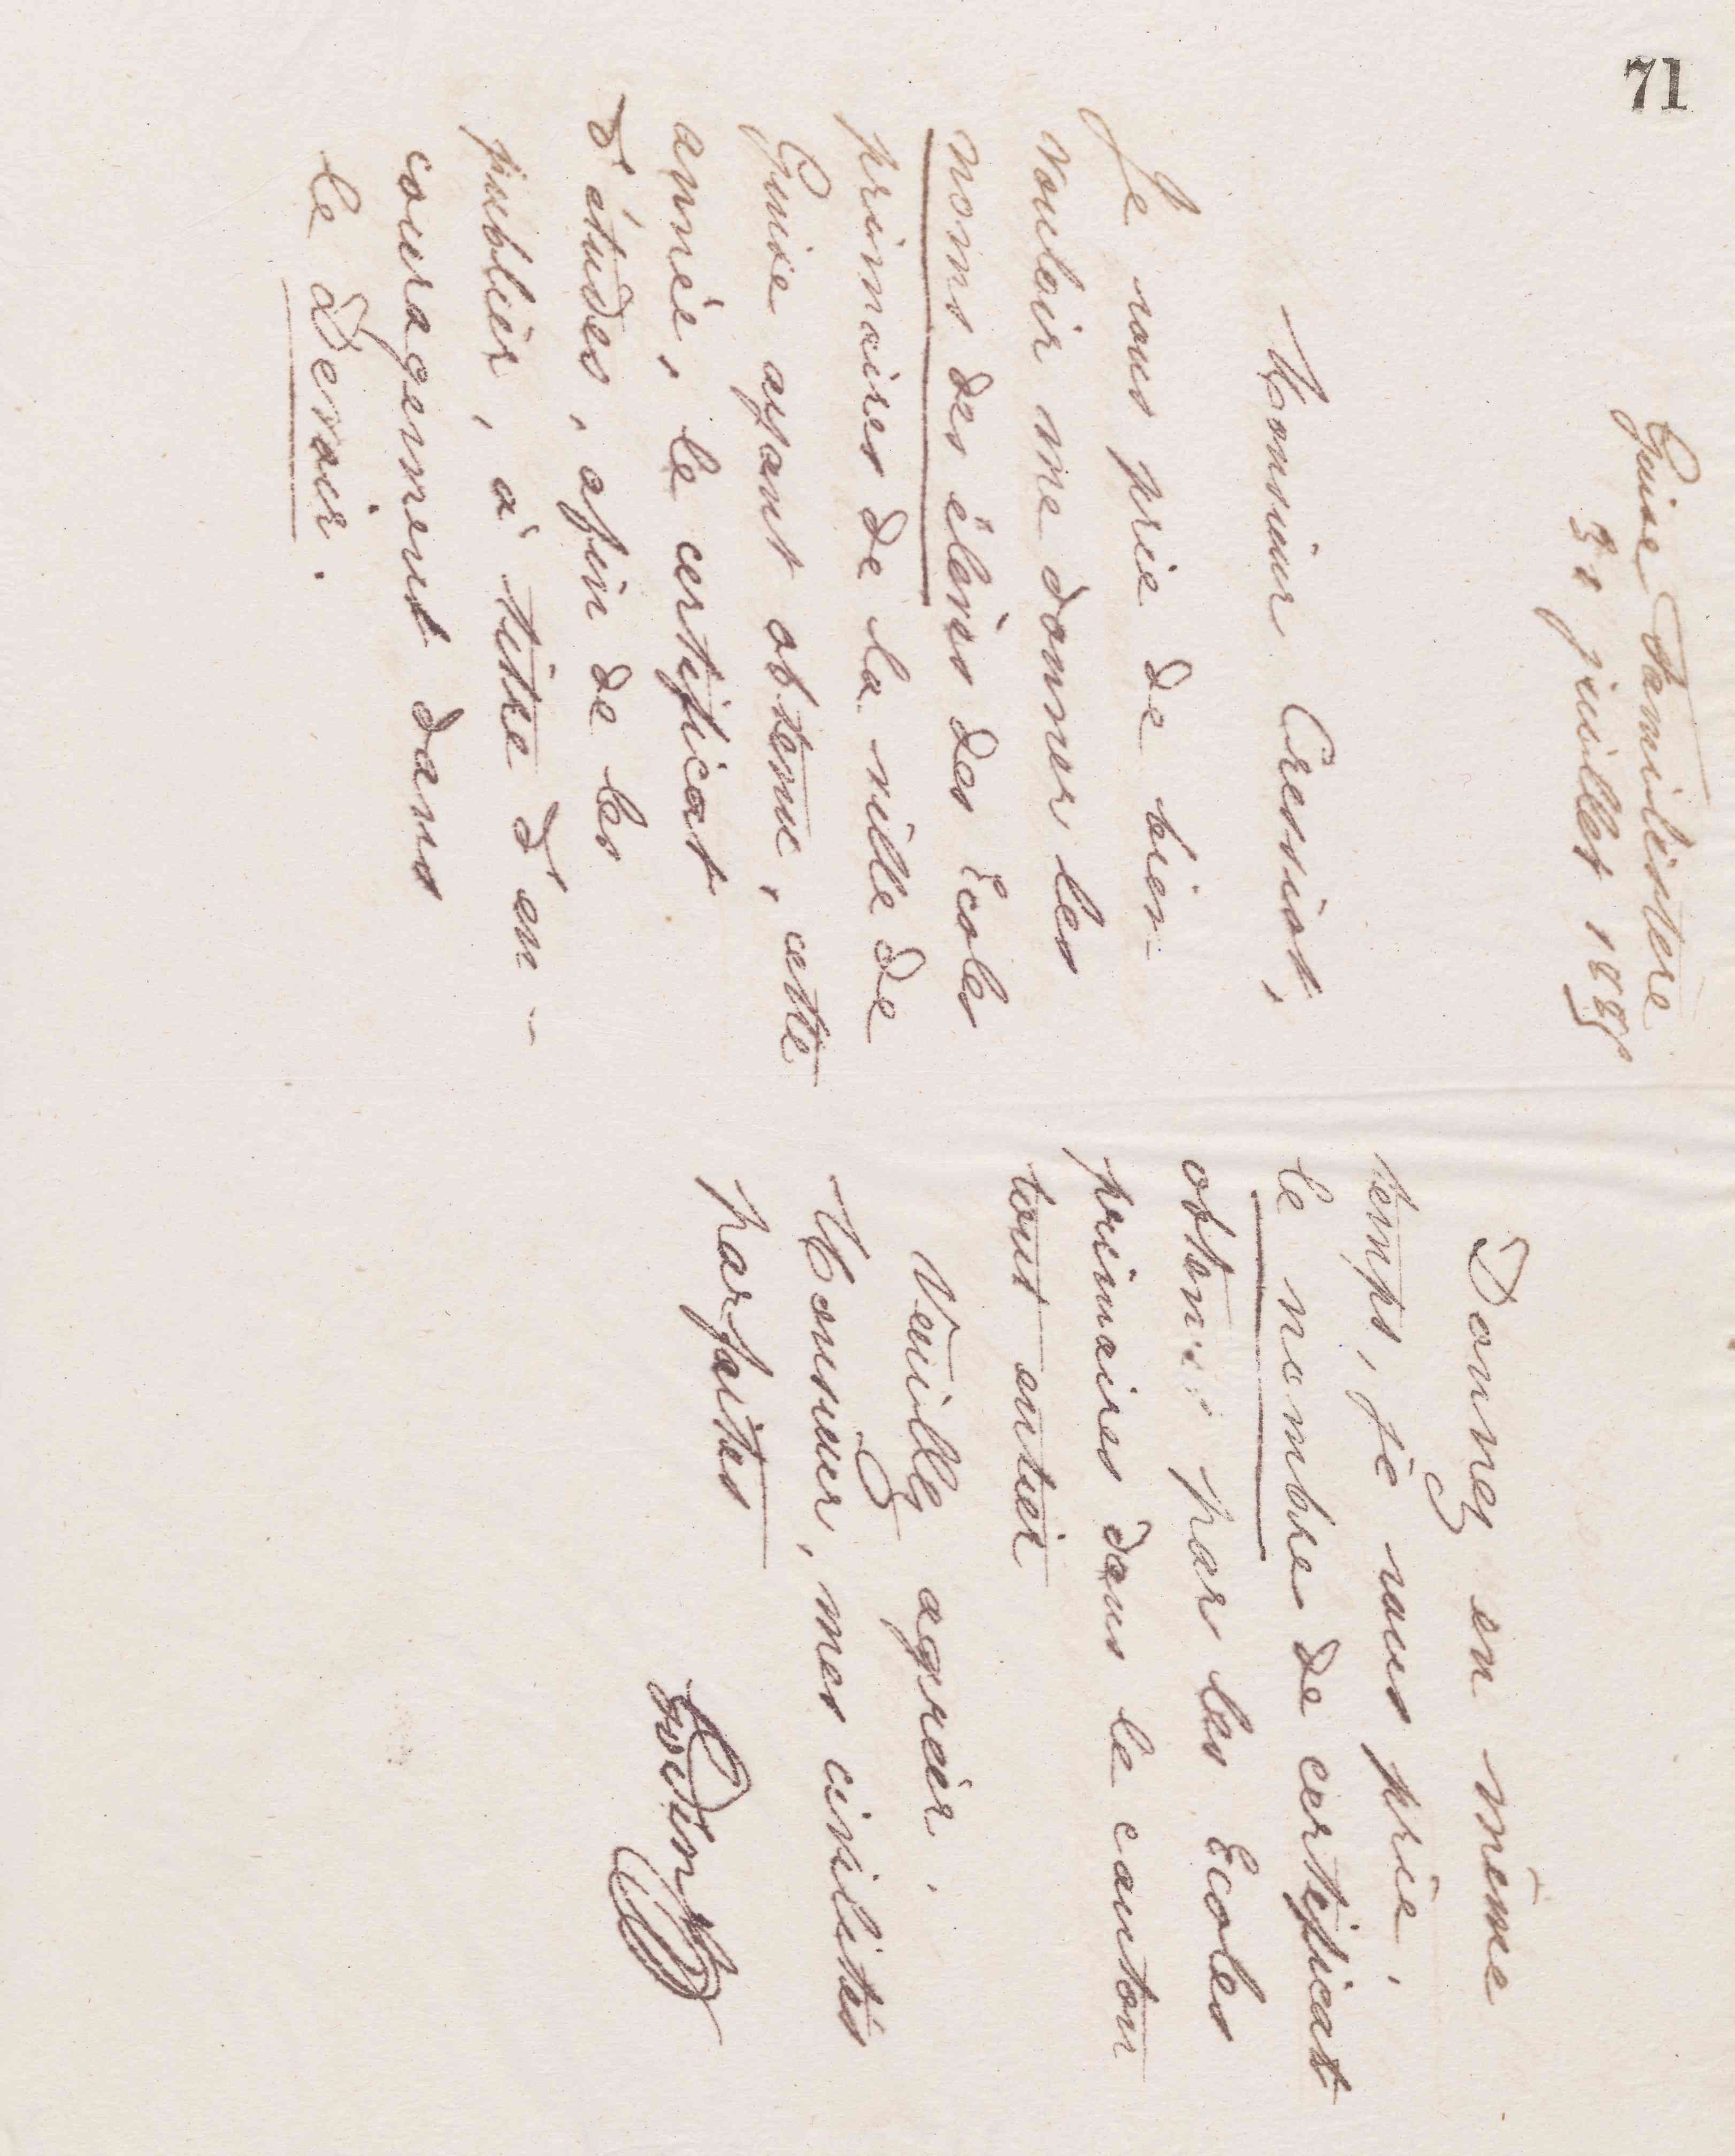 71
Guise Familistère
31 juillet 1885
Monsieur Cressiot,
Je vous prie de bien
vouloir me donner les
noms des élèves des Ecoles
primaires de la ville de
Guise ayant obtenu, cette
année, le certificat
d'études, afin de les
publier, à titre d'en-
couragement dans
le Devoir.
Donnez en même
temps, je vous prie,
le nombre de certificat
obtenus par les Ecoles
primaires dans le canton
tout entier
Veuillez agréer,
Monsieur, mes civilités
parfaites
Godin